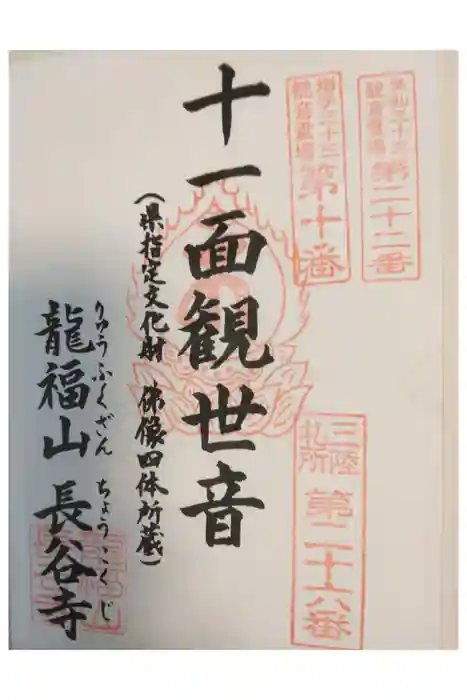 観音霊場
第二十二番
観音霊場
第十番
三陸
札所
十一面観世音
(県指定文化財 佛像四体所蔵)
りゅうふくざん ちょうこくじ
龍福山 長谷寺